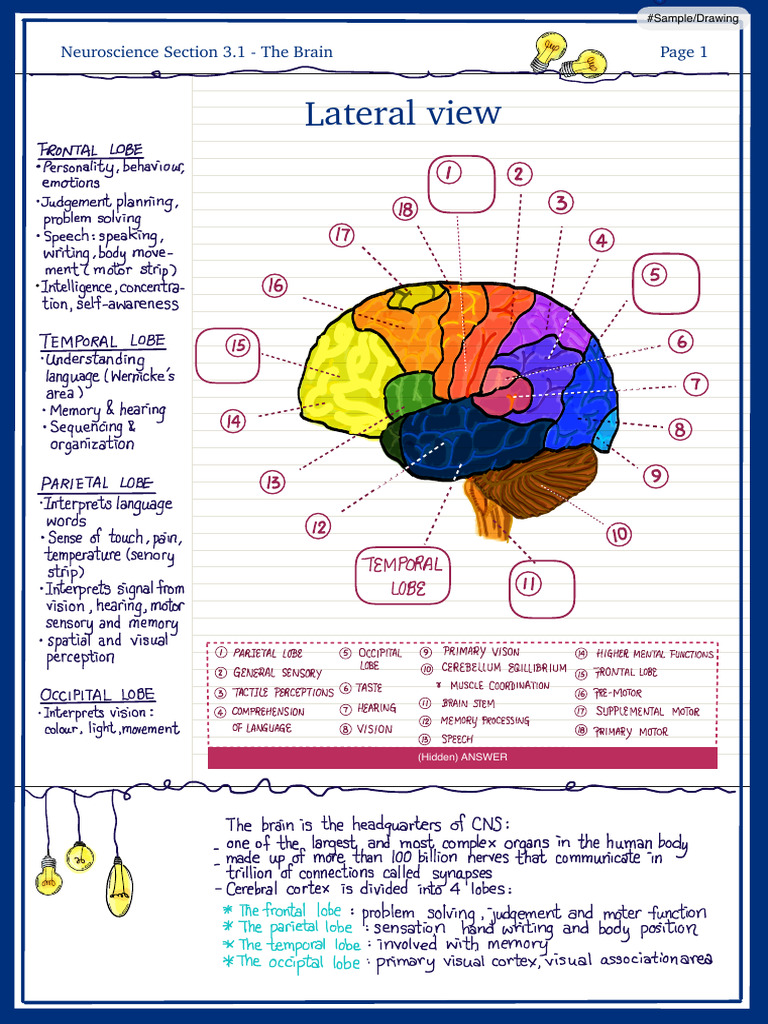 #Sample/Drawing
Neuroscience Section 3.1 - The Brain
Page 1
Lateral view
FRONTAL LOBE
• Personality, behaviour,
emotions
• Judgement planning,
problem solving
• Speech: speaking,
writing, body move-
ment (motor strip)
• Intelligence, concentra-
tion, self-awareness
TEMPORAL LOBE
• Understanding
language (Wernicke's
area)
• Memory & hearing
• Sequencing &
organization
PARIETAL LOBE
• Interprets language
words
• Sense of touch, pain,
temperature (senory
strip)
• Interprets signal from
vision, hearing, motor
sensory and memory
• spatial and visual
perception
OCCIPITAL LOBE
• Interprets vision:
colour, light, movement
1
2
3
4
5
6
7
8
9
10
11
TEMPORAL
LOBE
12
13
14
15
16
17
18
1 PARIETAL LOBE
2 GENERAL SENSORY
3 TACTILE PERCEPTIONS
4 COMPREHENSION
OF LANGUAGE
5 OCCIPITAL
LOBE
6 TASTE
7 HEARING
8 VISION
9 PRIMARY VISON
10 CEREBELLUM EQILIBRIUM
& MUSCLE COORDINATION
11 BRAIN STEM
12 MEMORY PROCESSING
13 SPEECH
14 HIGHER MENTAL FUNCTIONS
15 FRONTAL LOBE
16 PRE-MOTOR
17 SUPPLEMENTAL MOTOR
18 PRIMARY MOTOR
(Hidden) ANSWER
The brain is the headquarters of CNS:
- one of the largest and most complex organs in the human body
- made up of more than 100 billion nerves that communicate in
trillion of connections called synapses
- Cerebral cortex is divided into 4 lobes:
* The frontal lobe : problem solving, judgement and moter function
* The parietal lobe : sensation hand writing and body position
* The temporal lobe : involved with memory
* The occiptal lobe : primary visual cortex, visual association area